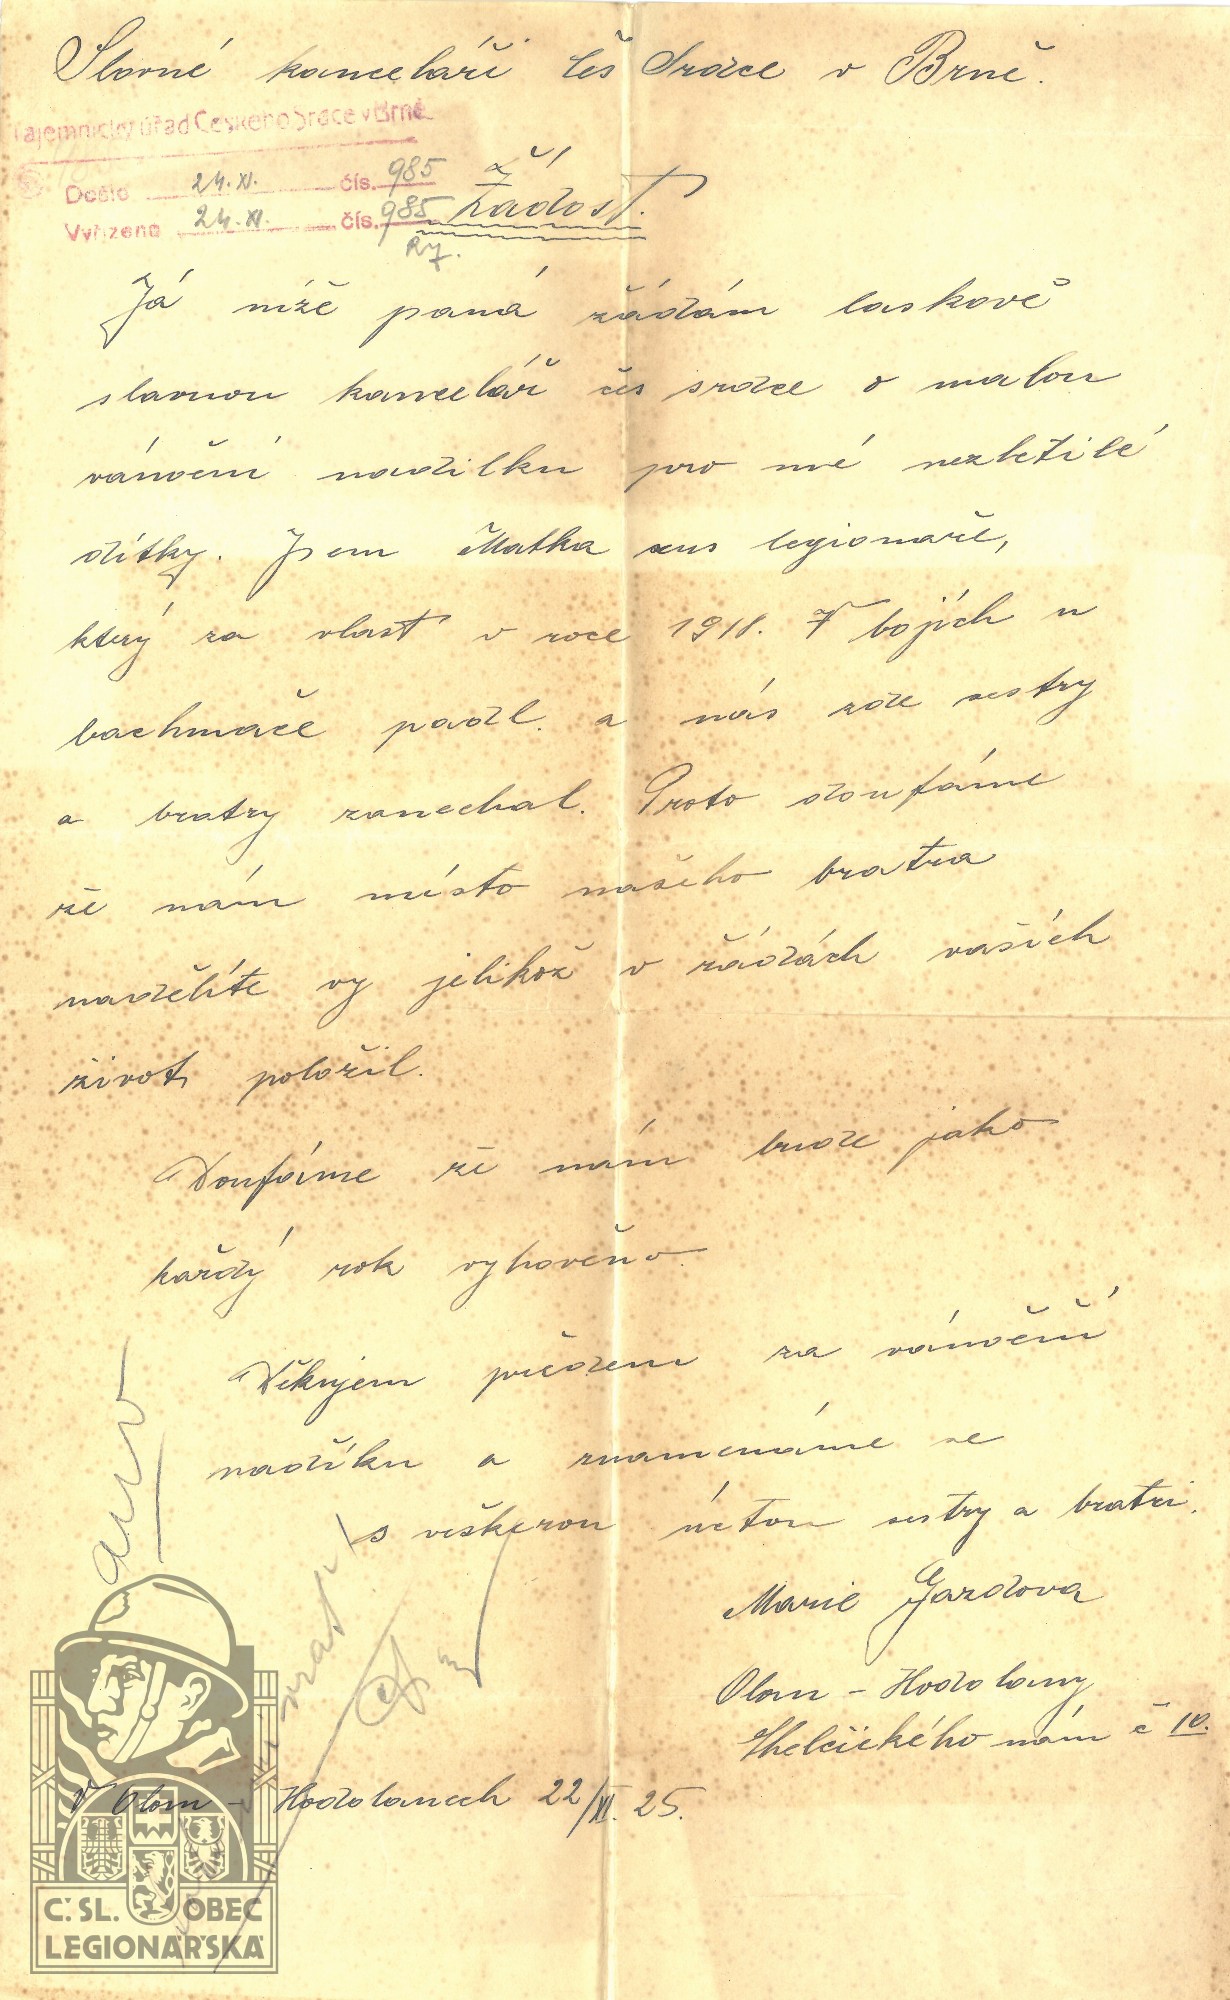 Slavné kanceláři čes Srdce v Brně.
Tajemnický úřad Českého Srdce v Brně
Došlo 24.XI. čís. 985
Vyřízeno 24.XI. čís. 985
Ry.
Žádost.
Já níže paná žádám laskavě
slavnou kancelář čes srdce o malou
vánoční nadilku pro mé nezletilé
dítky. Jsem Matka legionaře,
který za vlasť v roce 1918. V bojích u
bachmače padl. a nás zde sestry
a bratry zanechal. Proto doufáme
že nám místo našeho bratra
nadělíte vy jelikož v řádách vašich
život položil.
Doufáme že nám bude jako
každý rok vyhověno.
Děkujem předem za vánoční
nadíku a znamenáme se
s veškerou úctou sestry a bratri.
Marie Gazdova
Olom - Hodolany
Chelčického nám č 10.
V Olom - Hodolanech 22/XI. 25.
Č. SL. OBEC
LEGIONÁŘSKÁ